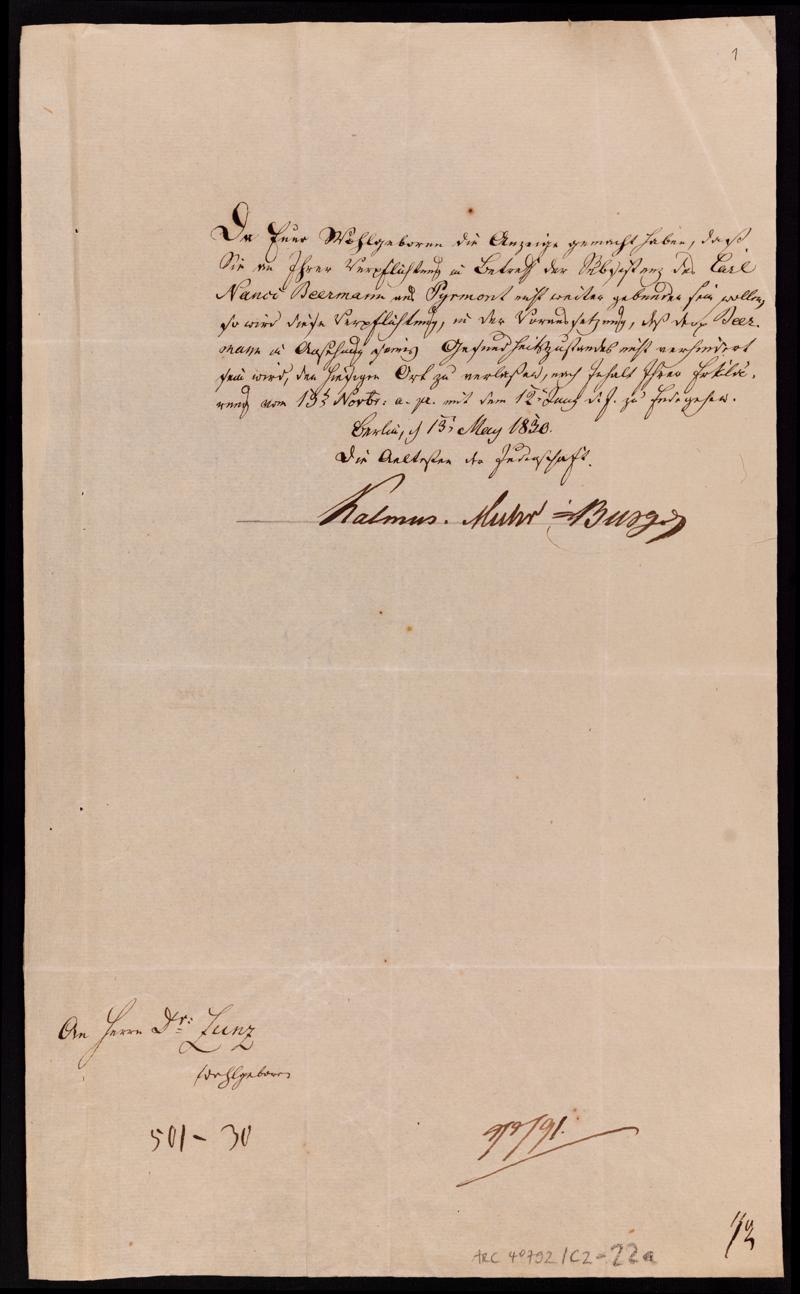 1
Da Euer Wohlgeboren die Anzeige gemacht haben, daß
Sie an Ihrer Verpflichtung in Betreff der Subsistenz des Carl
Nanci Beermann aus Pyrmont nicht weiter gebunden sein wollen,
so wird diese Verpflichtung, in der Voraussetzung, daß der p Beer-
mann in Ansehung seines Gesundheitszustandes nicht verhindert
sein wird, den hiesigen Ort zu verlassen, nach Inhalt Ihrer Erklä-
rung vom 13t Novbr: a. pr. mit dem 12t Juny d. J. zu Ende gehen.
Berlin, d 13t May 1830.
Die Aeltesten der Judenschaft.
Kalmus. Muhr Burg
An Herrn Dr: Zunz
Wohlgeboren
501 - 30
ARC 4°792/C2-22a